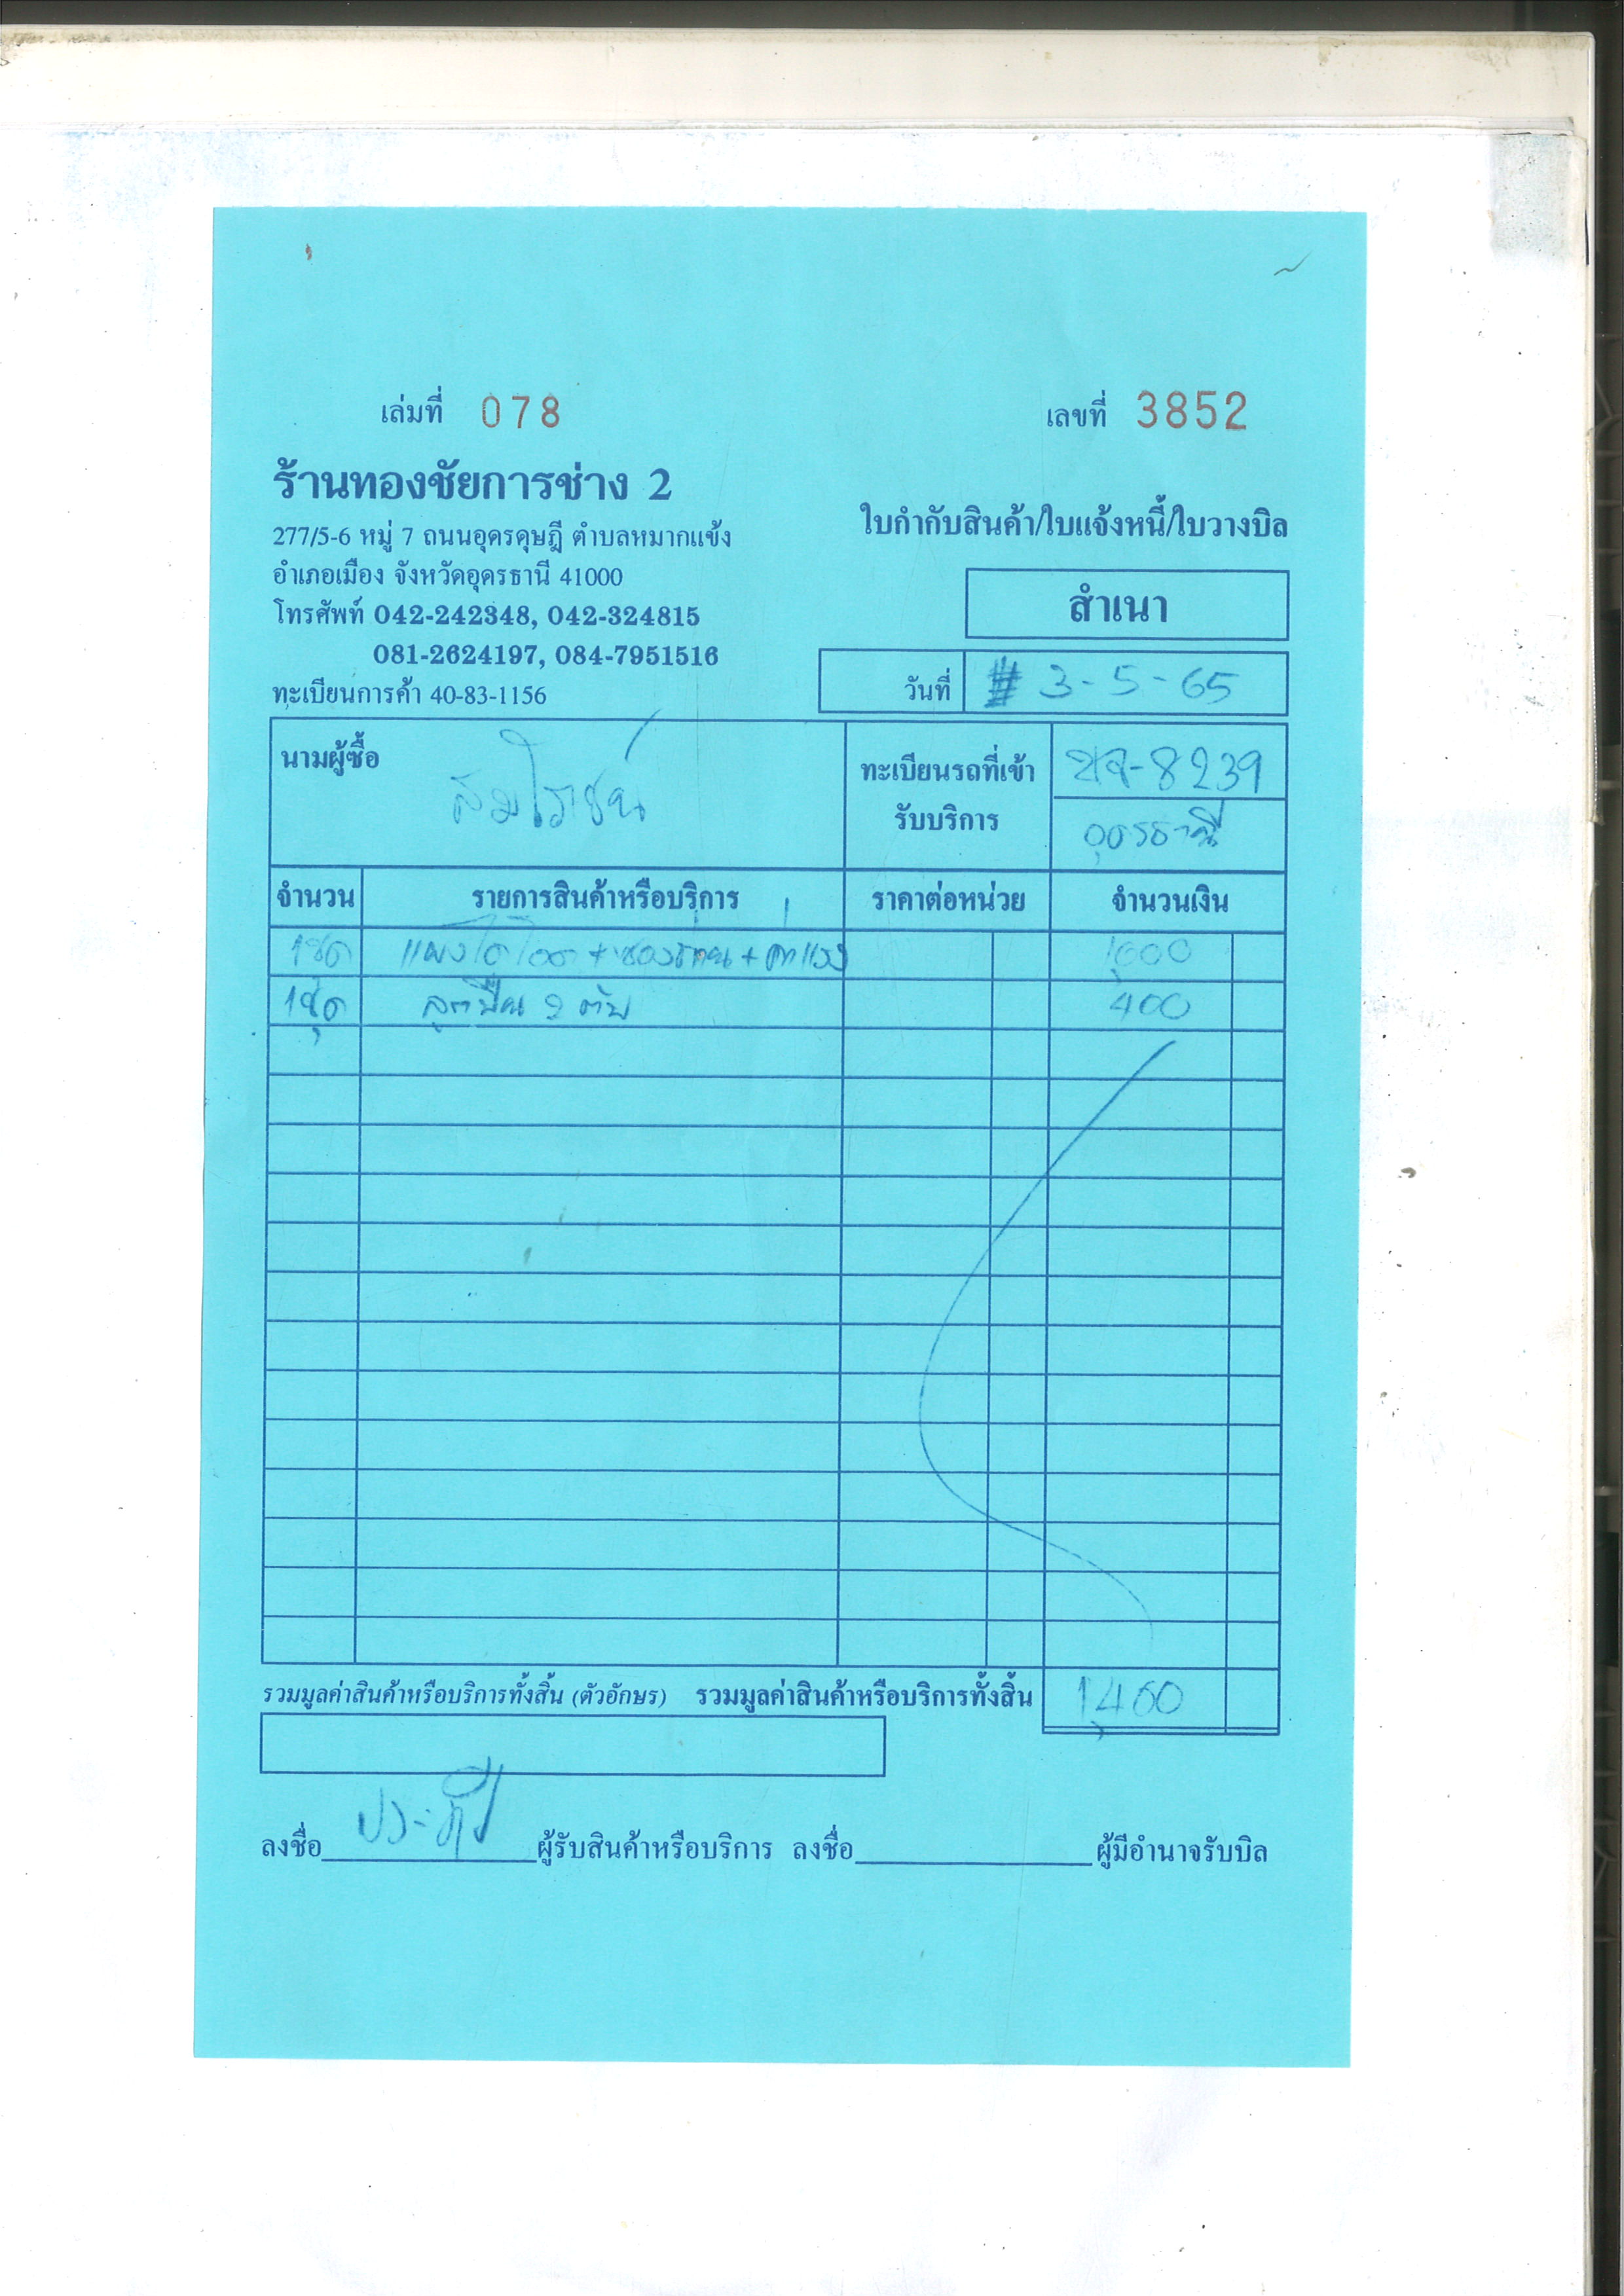 เล่มที่ 078 เลขที่ 3852
ร้านทองชัยการช่าง 2
277/5-6 หมู่ 7 ถนนอุดรดุษฎี ตำบลหมากแข้ง
ใบกำกับสินค้า/ใบแจ้งหนี้/ใบวางบิล
อำเภอเมือง จังหวัดอุดรธานี 41000
สำเนา
โทรศัพท์ 042-242348, 042-324815
081-2624197, 084-7951516
วันที่ 3-5-65
ทะเบียนการค้า 40-83-1156
นามผู้ซื้อ
ทะเบียนรถที่เข้ารับบริการ 8239
อุดรธานี
จำนวน รายการสินค้าหรือบริการ ราคาต่อหน่วย จำนวนเงิน
1ชุด แผงไดโอด + ซองถ่าน + ค่าแรง 1,000
1ชุด ลูกปืน 2 ตับ 400
รวมมูลค่าสินค้าหรือบริการทั้งสิ้น (ตัวอักษร) รวมมูลค่าสินค้าหรือบริการทั้งสิ้น 1,400
ลงชื่อ ผู้รับสินค้าหรือบริการ ลงชื่อ ผู้มีอำนาจรับบิล